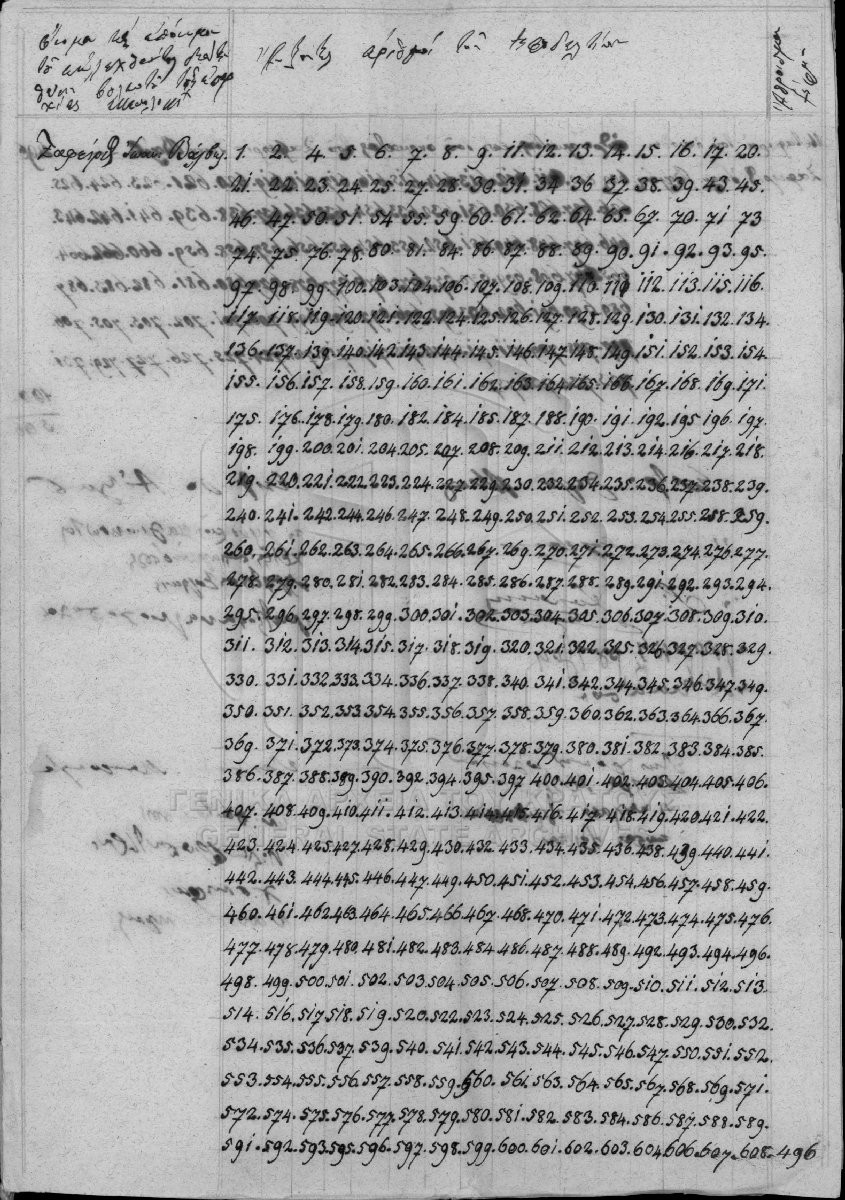 αὔξοντες ἀριθμοί τῶν
Ζαφείρης Ἰωάν. Βάλβης 1. 2. 4. 5. 6. 7. 8. 9. 11. 12. 13. 14. 15. 16. 17. 20.
21. 22. 23. 24. 25. 27. 28. 30. 31. 34 36 37. 38. 39. 43. 45.
46. 47. 50. 51. 54. 55. 59. 60. 61. 62. 64. 65. 67. 70. 71 73
74. 75. 76. 78. 80. 81. 84. 86. 87. 88. 89. 90. 91. 92. 93. 95.
97. 98. 99. 100. 103. 104. 106. 107. 108. 109. 110. 112. 113. 115. 116.
117. 118. 119. 120. 121. 122. 124. 125. 126. 127. 128. 129. 130. 131. 132. 134.
136. 137. 139. 140. 142. 143. 144. 145. 146. 147. 148. 149. 151. 152. 153. 154.
155. 156. 157. 158. 159. 160. 161. 162. 163. 164. 165. 166. 167. 168. 169. 171.
175. 176. 178. 179. 180. 182. 184. 185. 187. 188. 190. 191. 192. 195. 196. 197.
198. 199. 200. 201. 204. 205. 207. 208. 209. 211. 212. 213. 214. 216. 217. 218.
219. 220. 221. 222. 223. 224. 227. 229. 230. 232. 234. 235. 236. 237. 238. 239.
240. 241. 242. 244. 246. 247. 248. 249. 250. 251. 252. 253. 254. 255. 258. 259.
260. 261. 262. 263. 264. 265. 266. 267. 269. 270. 271. 272. 273. 274. 276. 277.
278. 279. 280. 281. 282. 283. 284. 285. 286. 287. 288. 289. 291. 292. 293. 294.
295. 296. 297. 298. 299. 300. 301. 302. 303. 304. 305. 306. 307. 308. 309. 310.
311. 312. 313. 314. 315. 317. 318. 319. 320. 321. 322. 325. 326. 327. 328. 329.
330. 331. 332. 333. 334. 336. 337. 338. 340. 341. 342. 344. 345. 346. 347. 349.
350. 351. 352. 353. 354. 355. 356. 357. 358. 359. 360. 362. 363. 364. 366. 367.
369. 371. 372. 373. 374. 375. 376. 377. 378. 379. 380. 381. 382. 383. 384. 385.
386. 387. 388. 389. 390. 392. 394. 395. 397 400. 401. 402. 403. 404. 405. 406.
407. 408. 409. 410. 411. 412. 413. 414. 415. 416. 417. 418. 419. 420. 421. 422.
423. 424. 425. 427. 428. 429. 430. 432. 433. 434. 435. 436. 438. 439. 440. 441.
442. 443. 444. 445. 446. 447. 449. 450. 451. 452. 453. 454. 456. 457. 458. 459.
460. 461. 462. 463. 464. 465. 466. 467. 468. 470. 471. 472. 473. 474. 475. 476.
477. 478. 479. 480. 481. 482. 483. 484. 486. 487. 488. 489. 492. 493. 494. 496.
498. 499. 500. 501. 502. 503. 504. 505. 506. 507. 508. 509. 510. 511. 512. 513.
514. 516. 517. 518. 519. 520. 522. 523. 524. 525. 526. 527. 528. 529. 530. 532.
534. 535. 536. 537. 539. 540. 541. 542. 543. 544. 545. 546. 547. 550. 551. 552.
553. 554. 555. 556. 557. 558. 559. 560. 561. 563. 564. 565. 567. 568. 569. 571.
572. 574. 575. 576. 577. 578. 579. 580. 581. 582. 583. 584. 586. 587. 588. 589.
591. 592. 593. 595. 596. 597. 598. 599. 600. 601. 602. 603. 604. 606. 607. 608. 496
GENERAL STATE ARCHIVES